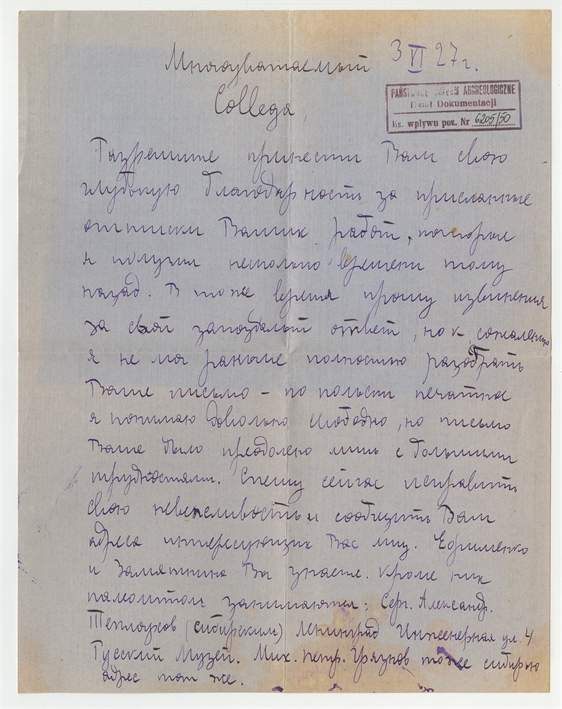 Многоуватаемый 3 VI 27 г.
Collega,
PAŃSTWOWE ARCHEOLOGICZNE
Dział Dokumentacji
Ks. wpływu poz. Nr 6205/50
Разрешите принести Вам свою
глубокую благодарность за присланные
оттиски Ваших работ, которые
я получил несколько времени тому
назад. В то же время прошу извинения
за свой запоздалый ответ, но к сожалению
я не мог раньше полностью разобрать
Ваше письмо – по польски печатное
я понимаю довольно свободно, но письмо
Ваше было преодолено лишь с большими
трудностями. Спешу сейчас исправить
свою невежливость и сообщить Вам
адреса интересующих Вас лиц. Ефименко
и Замятнина Вы знаете. Кроме них
палеолитом занимаются: Серг. Александ.
Теплоухов (сибирским) Ленинград Инженерная ул. 4
Русский Музей. Мих. петр. Грязнов тоже сибирью
адрес тот же.